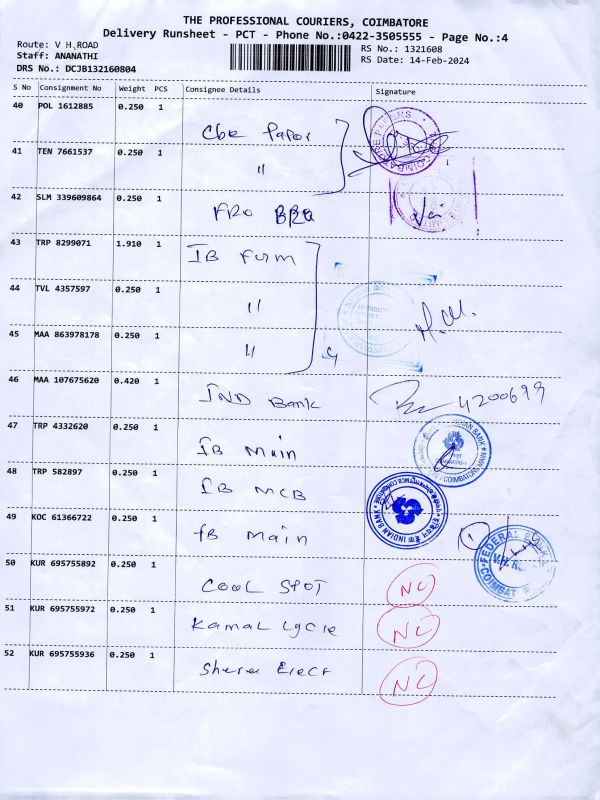 THE PROFESSIONAL COURIERS, COIMBATORE
Delivery Runsheet - PCT - Phone No.:0422-3505555 - Page No.:4
Route: V H.ROAD
RS No.: 1321608
Staff: ANANATHI
RS Date: 14-Feb-2024
DRS No.: DCJB132160804
S No Consignment No Weight PCS Consignee Details Signature
40 POL 1612885 0.250 1
Cbe Paper
41 TEN 7661537 0.250 1
"
42 SLM 339609864 0.250 1
43 TRP 8299071 1.910 1
IB Furm
44 TVL 4357597 0.250 1
"
45 MAA 863978178 0.250 1
"
46 MAA 107675620 0.420 1
IND Bank 4200699
47 TRP 4332620 0.250 1
IB Main
48 TRP 582897 0.250 1
IB MCB
INDIAN BANK
49 KOC 61366722 0.250 1
IB Main 1
FEDERAL
50 KUR 695755892 0.250 1
COOL SPOT NC
51 KUR 695755972 0.250 1
Kamal Lycie NC
52 KUR 695755936 0.250 1
NC